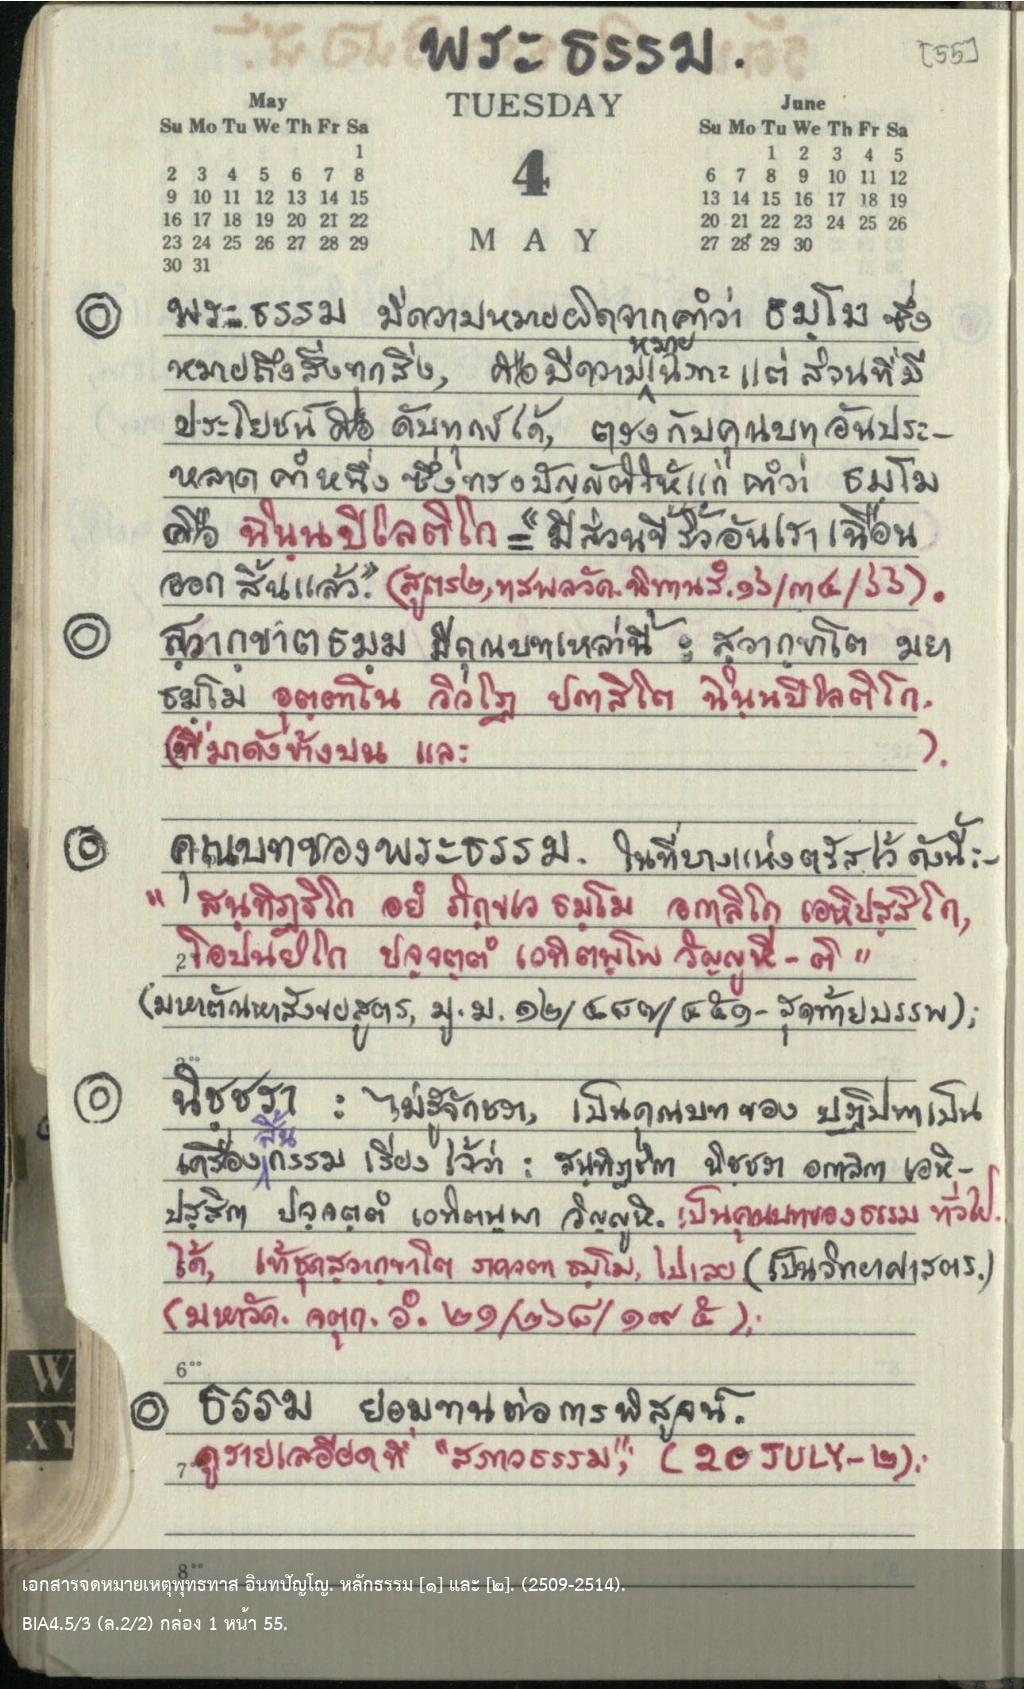 พระธรรม.
[55]
May
Su Mo Tu We Th Fr Sa
1
2 3 4 5 6 7 8
9 10 11 12 13 14 15
16 17 18 19 20 21 22
23 24 25 26 27 28 29
30 31
TUESDAY
4
MAY
June
Su Mo Tu We Th Fr Sa
1 2 3 4 5
6 7 8 9 10 11 12
13 14 15 16 17 18 19
20 21 22 23 24 25 26
27 28 29 30
พระธรรม มีความหมายผิดจากคำว่า ธมฺโม ซึ่ง
หมาย
หมายถึงสิ่งทุกสิ่ง, คือมีความ แต่ส่วนที่มี
ประโยชน์ คือ ดับทุกข์ได้, ตรงกับคุณบทอันประ-
หลาดคำหนึ่ง ซึ่งทรงบัญญัติให้แก่ คำว่า ธมฺโม
คือ ฉินฺนปิโลติโก = "มีส่วนขี้ริ้วอันเราเฉือน
ออกสิ้นแล้ว." (สูตร๒,ทสพลวัค.นิทานสํ.๑๖/๓๔/๖๖).
สฺวากฺขาตธมฺม มีคุณบทเหล่านี้ : สฺวากฺขาโต มยา
ธมฺโม อุตฺตาโน วิวโฏ ปกาสิโต ฉินฺนปิโลติโก.
(ที่มาดังข้างบน และ ).
คุณบทของพระธรรม. ในที่บางแห่งตรัสไว้ ดังนี้:-
" สนฺทิฏฺฐิโก อยํ ภิกฺขเว ธมฺโม อกาลิโก เอหิปสฺสิโก,
โอปนยิโก ปจฺจตฺตํ เวทิตพฺโพ วิญฺญูหี-ติ "
(มหาตัณหาสังขยสูตร, มู.ม. ๑๒/๔๘๗/๔๕๑- สุดท้ายบรรพ);
นิชฺชรา : ไม่รู้จักชรา, เป็นคุณบทของ ปฏิปทาเป็น
สิ้น
เครื่องกรรม เรียงไว้ว่า : สนฺทิฏฺฐิกา นิชฺชรา อกาลิกา เอหิ-
ปสฺสิกา ปจฺจตฺตํ เวทิตพฺพา วิญฺญูหิ. เป็นคุณบทของธรรม ทั่วไป.
ได้, เท่าชุดสฺวากฺขาโต ภควตา ธมฺโม, ไปเลย (เป็นวิทยาศาสตร.)
(มหาวัค. จตุก. อํ. ๒๑/๒๖๘/๑๙๕);
6⁰⁰
ธรรม ย่อมทนต่อการพิสูจน์.
7 ดูรายละเอียดที่ "สภาวธรรม"; (20 JULY-๒);
8⁰⁰
W
XY
เอกสารจดหมายเหตุพุทธทาส อินทปัญโญ. หลักธรรม [๑] และ [๒]. (2509-2514).
BIA4.5/3 (ล.2/2) กล่อง 1 หน้า 55.